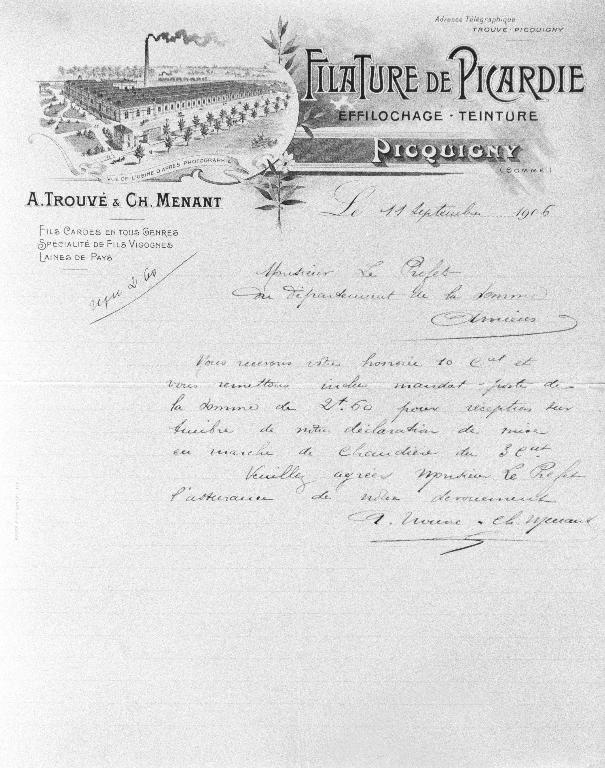 Adresse Télégraphique
TROUVÉ-PICQUIGNY
FILATURE DE PICARDIE
EFFILOCHAGE - TEINTURE
PICQUIGNY
(SOMME)
VUE DE L'USINE D'APRÈS PHOTOGRAPHIE
A. TROUVÉ & CH. MENANT
Le 11 Septembre 1906
FILS CARDÉS EN TOUS GENRES
SPÉCIALITÉ DE FILS VIGOGNES
LAINES DE PAYS
reçu 2.60
Monsieur Le Préfet
du département de la Somme
Amiens
Nous recevons votre honorée 10 Ct et
vous remettons inclus mandat-poste de
la somme de 2f.60 pour réception sur
timbre de notre déclaration de mise
en marche de Chaudière du 3 Ct
Veuillez agréer Monsieur Le Préfet
l'assurance de notre dévouement
A. Trouvé & Ch. Menant